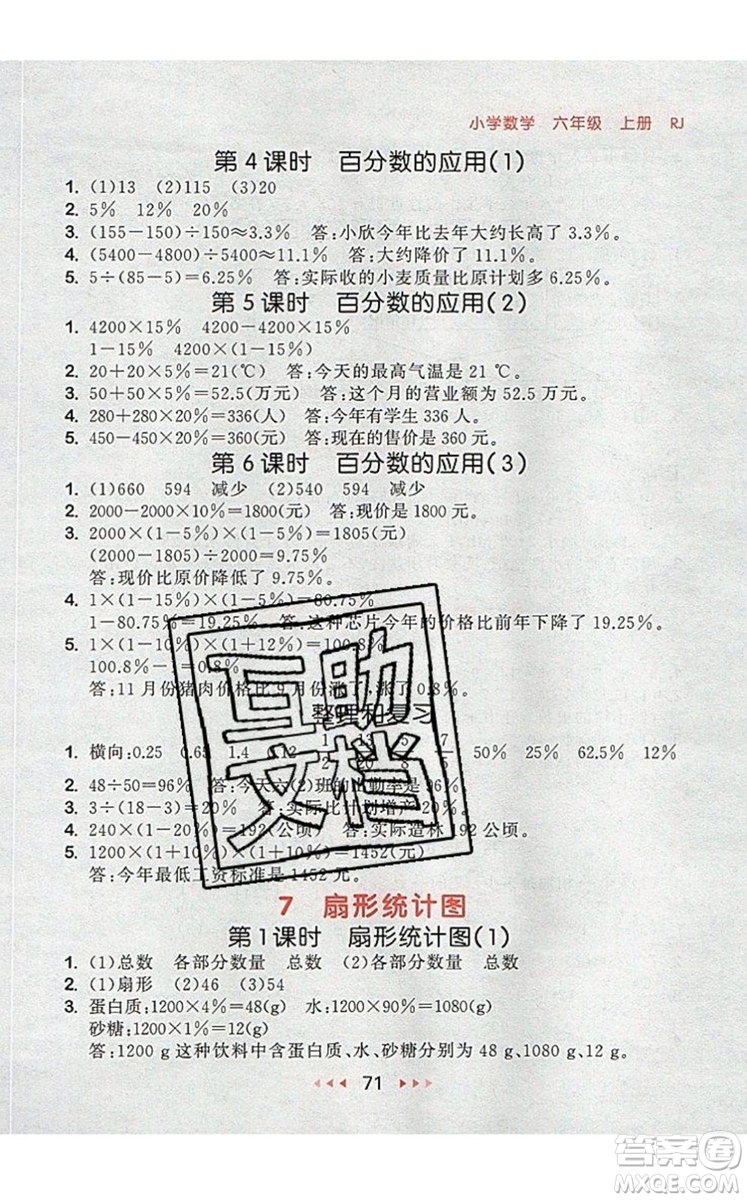 小学数学 六年级 上册 RJ
第4课时 百分数的应用(1)
1. (1)13 (2)115 (3)20
2. 5% 12% 20%
3. (155-150)÷150≈3.3% 答:小欣今年比去年大约长高了3.3%。
4. (5400-4800)÷5400≈11.1% 答:大约降价了11.1%。
5. 5÷(85-5)=6.25% 答:实际收的小麦质量比原计划多6.25%。
第5课时 百分数的应用(2)
1. 4200×15% 4200-4200×15%
1-15% 4200×(1-15%)
2. 20+20×5%=21(℃) 答:今天的最高气温是21 ℃。
3. 50+50×5%=52.5(万元) 答:这个月的营业额为52.5万元。
4. 280+280×20%=336(人) 答:今年有学生336人。
5. 450-450×20%=360(元) 答:现在的售价是360元。
第6课时 百分数的应用(3)
1. (1)660 594 减少 (2)540 594 减少
2. 2000-2000×10%=1800(元) 答:现价是1800元。
3. 2000×(1-5%)×(1-5%)=1805(元)
(2000-1805)÷2000=9.75%
答:现价比原价降低了9.75%。
4. 1×(1-15%)×(1-5%)=80.75%
1-80.75%=19.25% 答:这种芯片今年的价格比前年下降了19.25%。
5. 1×(1-10%)×(1+12%)=100.8%
100.8%-1=0.8%
答:11月份猪肉价格比9月份涨了,涨了0.8%。
整理和复习
1. 横向:0.25 0.65 1.4 50% 25% 62.5% 12%
2. 48÷50=96% 答:今天六(2)班的出勤率是96%。
3. 3÷(18-3)=20% 答:实际比计划增产20%。
4. 240×(1-20%)=192(公顷) 答:实际造林192公顷。
5. 1200×(1+10%)×(1+10%)=1452(元)
答:今年最低工资标准是1452元。
7 扇形统计图
第1课时 扇形统计图(1)
1. (1)总数 各部分数量 总数 (2)各部分数量 总数
2. (1)扇形 (2)46 (3)54
3. 蛋白质:1200×4%=48(g) 水:1200×90%=1080(g)
砂糖:1200×1%=12(g)
答:1200 g这种饮料中含蛋白质、水、砂糖分别为48 g、1080 g、12 g。
71
互助
文档
答案圈
MXQE.COM